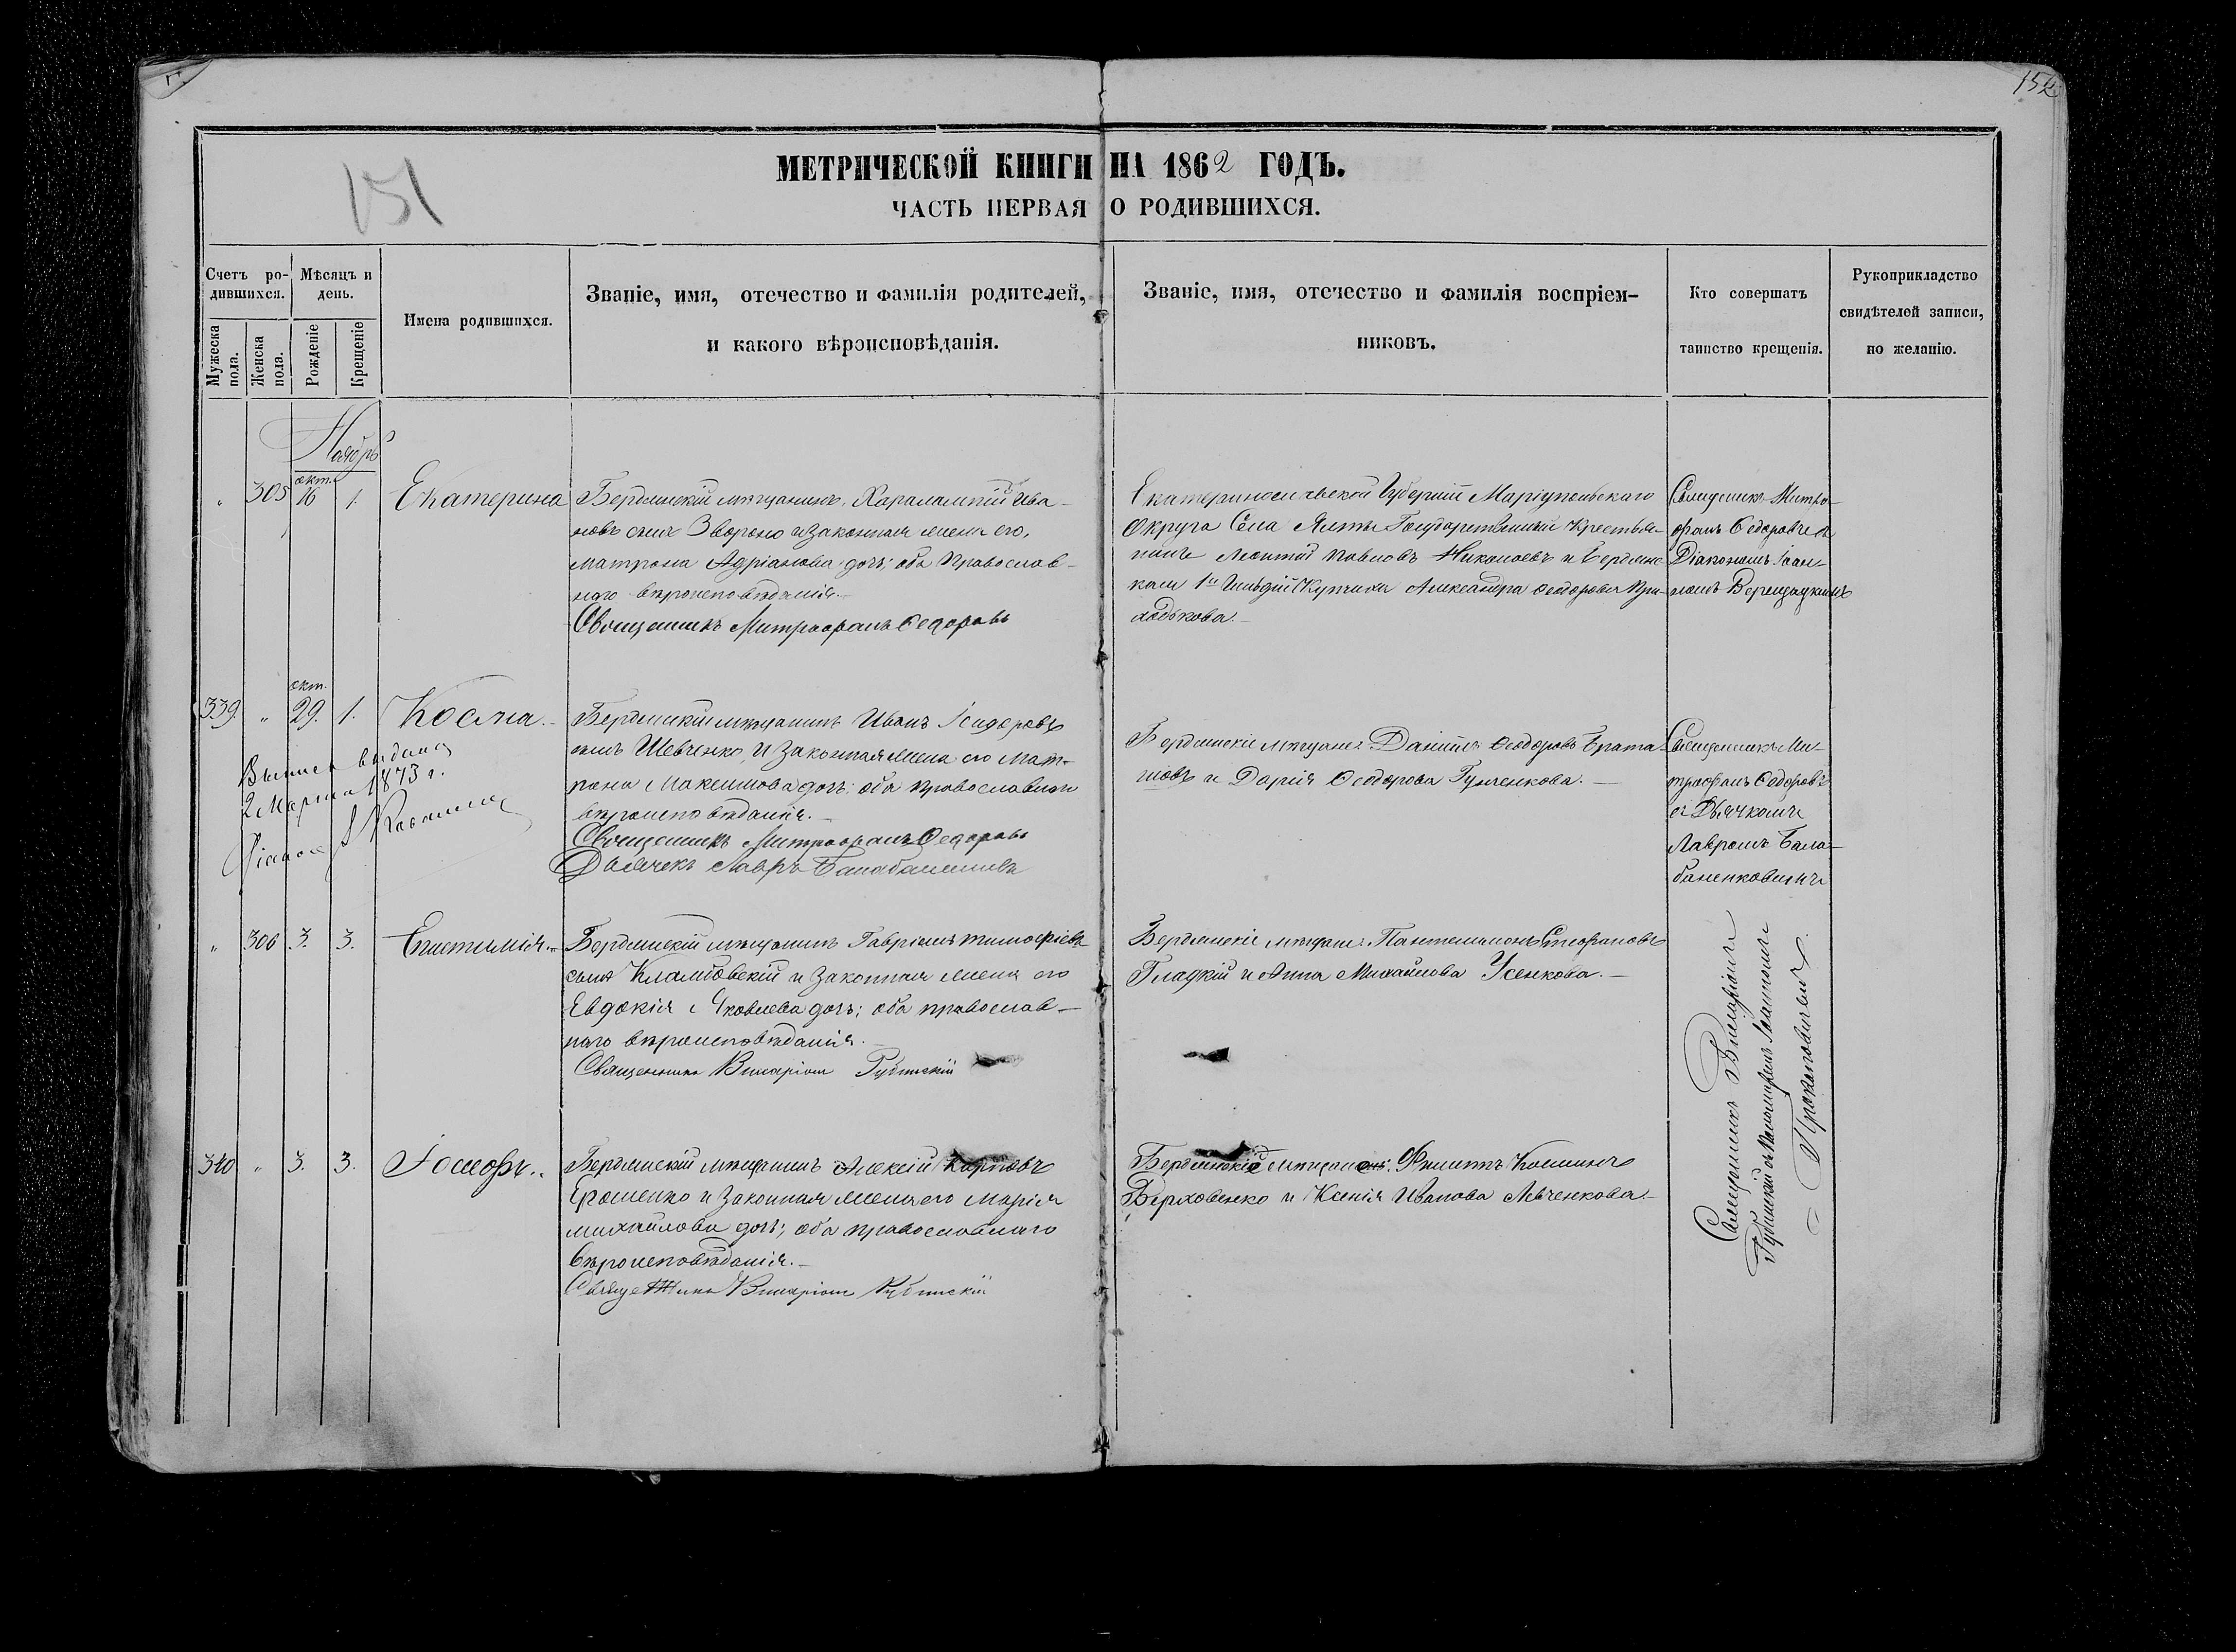 152
151
МЕТРИЧЕСКОЙ КНИГИ НА 1862 ГОДЪ.
ЧАСТЬ ПЕРВАЯ О РОДИВШИХСЯ.
Счетъ ро-
дившихся.
Мужеска
пола.
Женска
пола.
Мѣсяцъ и
день.
Рожденіе
Крещеніе
Имена родившихся.
Званіе, имя, отечество и фамилія родителей,
и какого вѣроисповѣданія.
Званіе, имя, отечество и фамилія воспріем-
никовъ.
Кто совершатъ
таинство крещенія.
Рукоприкладство
свидѣтелей записи,
по желанію.
Ноябрь
" 305 окт. 16 1. Екатерина
Бердянскій мѣщанинъ, Харалампій Ива-
новъ сынъ Звороно и законная жена его,
Матрона Адріанова дочь; оба Православ-
наго вѣроисповѣданія.
Священникъ Митрофанъ Ѳедоровъ
Екатеринославской Губерніи Маріупольскаго
Округа Села Ялты Государственный Крестья-
нинъ Леонтій Павловъ Николаевъ и Бердянс-
кая 1й Гильдіи Купчиха Александра Ѳеодорова При-
ходькова.
Священникъ Митро-
фанъ Ѳедоровъ съ
Діакономъ Іоан-
номъ
339. " окт. 29. 1. Косма.
Бердянскій мѣщанинъ Иванъ Исидоровъ
сынъ Шевченко, и законная жена его Мат-
рона Максимова дочь: оба православнаго
вѣроисповѣданія.
Священникъ Митрофанъ Ѳедоровъ
Дьячекъ Лавръ
Бердянскіе мѣщане: Даніилъ Ѳеодоровъ Брата-
новъ и Дарія Ѳеодорова Гунченкова.
Священникъ Ми-
трофанъ Ѳедоровъ
съ Дьячкомъ
Лавромъ Бала-
баненковымъ
выдана
2 Марта 1873 г.
" 306 3. 3. Епистимія.
Бердянскій мѣщанинъ Гавріилъ Тимофіевъ
сынъ и законная жена его
Евдокія Яковлева дочь; оба православ-
наго вѣроисповѣданія.
Священникъ Виларіонъ Губинскій
Бердянскіе мѣщане: Пантелимонъ Стефановъ
Гладкій и Анна Михайлова Усенкова.
340 " 3. 3. Іосифъ.
Бердянскій мѣщанинъ Алексій Карповъ
Ярошенко и законная жена его Марія
Михайлова дочь; оба православнаго
вѣроисповѣданія.
Священникъ Виларіонъ Губинскій
Бердянскіе мѣщане: Филиппъ Косминъ
Верховенко и Ксенія Иванова Левченкова.
Священникъ Виларіонъ
Губинскій съ Пономаремъ Іоанномъ
Прокоповичемъ.